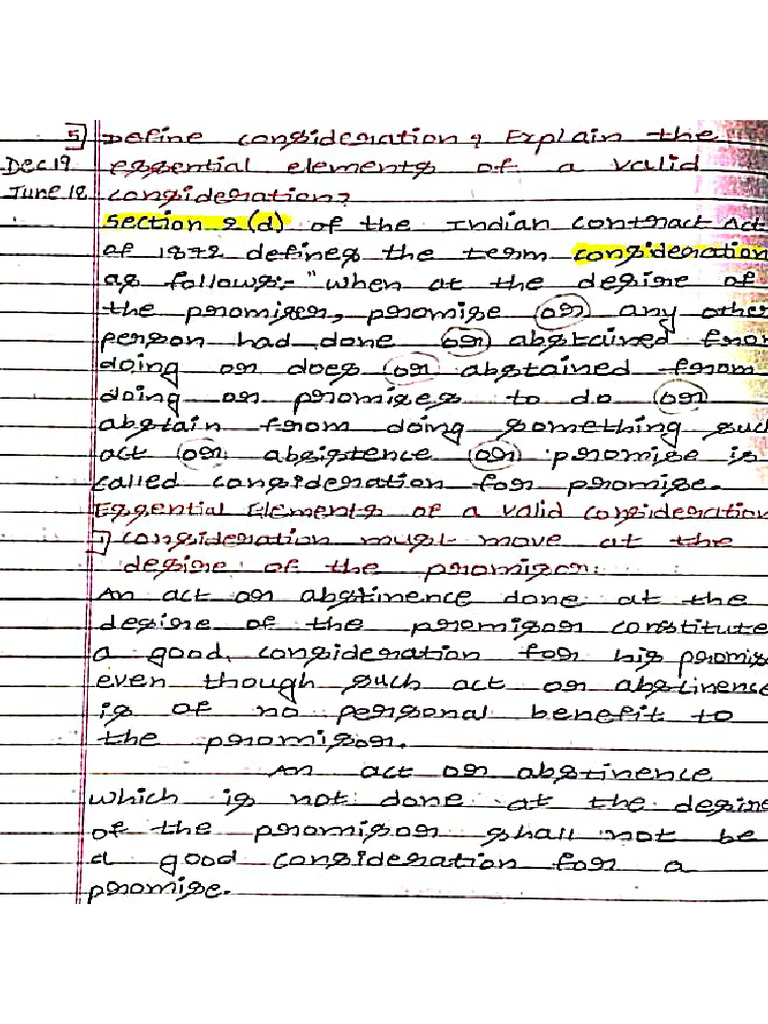 5] Define consideration & Explain the
Dec 19 essential elements of a valid
June 18 consideration?
Section 2(d) of the Indian Contract Act
of 1872 defines the term consideration
as follows:- "When at the desire of
the promiser, promise (or) any other
person had done (or) abstained from
doing or does (or) abstained from
doing or promises to do (or)
abstain from doing something such
act (or) absistence (or) promise is
called consideration for promise.
Essential Elements of a valid consideration
1] Consideration must move at the
desire of the promisor:
An act or abstinence done at the
desire of the promisor constitute
a good consideration for his promise
even though such act or abstinence
is of no personal benefit to
the promisor.
An act or abstinence
which is not done at the desire
of the promisor shall not be
a good consideration for a
promise.